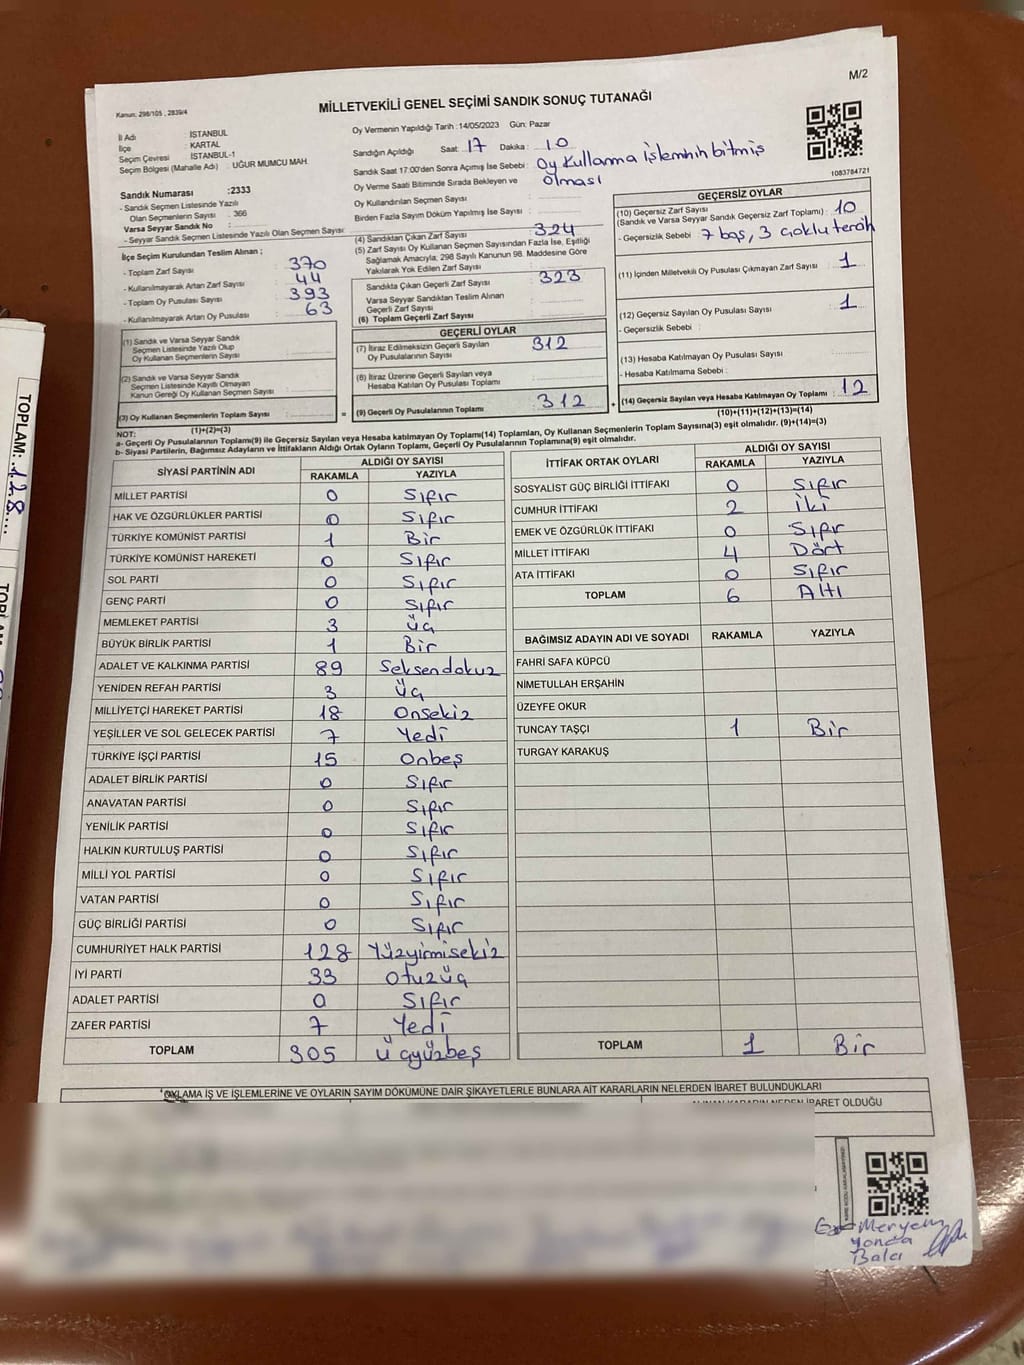 M/2
Kanun: 298/105 , 2839/4
MİLLETVEKİLİ GENEL SEÇİMİ SANDIK SONUÇ TUTANAĞI
İl Adı : İSTANBUL
İlçe : KARTAL
Seçim Çevresi : İSTANBUL-1
Seçim Bölgesi (Mahalle Adı) : UĞUR MUMCU MAH.
Sandık Numarası :2333
- Sandık Seçmen Listesinde Yazılı
Olan Seçmenlerin Sayısı : 366
Varsa Seyyar Sandık No :
- Seyyar Sandık Seçmen Listesinde Yazılı Olan Seçmen Sayısı:
Oy Vermenin Yapıldığı Tarih :14/05/2023 Gün: Pazar
Sandığın Açıldığı Saat: 17 Dakika : 10
Sandık Saat 17:00'den Sonra Açımış İse Sebebi : Oy Kullanma işleminin bitmiş
olması
Oy Verme Saati Bitiminde Sırada Bekleyen ve
Oy Kullandırılan Seçmen Sayısı :
Birden Fazla Sayım Döküm Yapılmış İse Sayısı :
1083784721
İlçe Seçim Kurulundan Teslim Alınan ;
- Toplam Zarf Sayısı : 370
- Kullanılmayarak Artan Zarf Sayısı : 44
- Toplam Oy Pusulası Sayısı : 393
- Kullanılmayarak Artan Oy Pusulası : 63
(1) Sandık ve Varsa Seyyar Sandık
Seçmen Listesinde Yazılı Olup
Oy Kullanan Seçmenlerin Sayısı :
(2) Sandık ve Varsa Seyyar Sandık
Seçmen Listesinde Kayıtlı Olmayan
Kanun Gereği Oy Kullanan Seçmen Sayısı :
(3) Oy Kullanan Seçmenlerin Toplam Sayısı :
(1)+(2)=(3)
(4) Sandıktan Çıkan Zarf Sayısı : 324
(5) Zarf Sayısı Oy Kullanan Seçmen Sayısından Fazla İse, Eşitliği
Sağlamak Amacıyla, 298 Sayılı Kanunun 98. Maddesine Göre
Yakılarak Yok Edilen Zarf Sayısı :
Sandıkta Çıkan Geçerli Zarf Sayısı : 323
Varsa Seyyar Sandıktan Teslim Alınan
Geçerli Zarf Sayısı :
(6) Toplam Geçerli Zarf Sayısı :
GEÇERLİ OYLAR
(7) İtiraz Edilmeksizin Geçerli Sayılan
Oy Pusulalarının Sayısı : 312
(8) İtiraz Üzerine Geçerli Sayılan veya
Hesaba Katılan Oy Pusulası Toplamı :
= (9) Geçerli Oy Pusulalarının Toplamı : 312 +
GEÇERSİZ OYLAR
(10) Geçersiz Zarf Sayısı
(Sandık ve Varsa Seyyar Sandık Geçersiz Zarf Toplamı) : 10
- Geçersizlik Sebebi : 7 boş, 3 çoklu tercih
(11) İçinden Milletvekili Oy Pusulası Çıkmayan Zarf Sayısı : 1
(12) Geçersiz Sayılan Oy Pusulası Sayısı : 1
- Geçersizlik Sebebi :
(13) Hesaba Katılmayan Oy Pusulası Sayısı :
- Hesaba Katılmama Sebebi :
(14) Geçersiz Sayılan veya Hesaba Katılmayan Oy Toplamı : 12
(10)+(11)+(12)+(13)=(14)
NOT:
a- Geçerli Oy Pusulalarının Toplamı(9) ile Geçersiz Sayılan veya Hesaba katılmayan Oy Toplamı(14) Toplamları, Oy Kullanan Seçmenlerin Toplam Sayısına(3) eşit olmalıdır. (9)+(14)=(3)
b- Siyasi Partilerin, Bağımsız Adayların ve İttifakların Aldığı Oyların Toplamı, Geçerli Oy Pusulalarının Toplamına(9) eşit olmalıdır.
SİYASİ PARTİNİN ADI ALDIĞI OY SAYISI
RAKAMLA YAZIYLA
MİLLET PARTİSİ 0 Sıfır
HAK VE ÖZGÜRLÜKLER PARTİSİ 0 Sıfır
TÜRKİYE KOMÜNİST PARTİSİ 1 Bir
TÜRKİYE KOMÜNİST HAREKETİ 0 Sıfır
SOL PARTİ 0 Sıfır
GENÇ PARTİ 0 Sıfır
MEMLEKET PARTİSİ 3 üç
BÜYÜK BİRLİK PARTİSİ 1 Bir
ADALET VE KALKINMA PARTİSİ 89 Seksendokuz
YENİDEN REFAH PARTİSİ 3 üç
MİLLİYETÇİ HAREKET PARTİSİ 18 Onsekiz
YEŞİLLER VE SOL GELECEK PARTİSİ 7 Yedi
TÜRKİYE İŞÇİ PARTİSİ 15 Onbeş
ADALET BİRLİK PARTİSİ 0 Sıfır
ANAVATAN PARTİSİ 0 Sıfır
YENİLİK PARTİSİ 0 Sıfır
HALKIN KURTULUŞ PARTİSİ 0 Sıfır
MİLLİ YOL PARTİSİ 0 Sıfır
VATAN PARTİSİ 0 Sıfır
GÜÇ BİRLİĞİ PARTİSİ 0 Sıfır
CUMHURİYET HALK PARTİSİ 128 Yüzyirmisekiz
İYİ PARTİ 33 Otuzüç
ADALET PARTİSİ 0 Sıfır
ZAFER PARTİSİ 7 Yedi
TOPLAM 305 üçyüzbeş
İTTİFAK ORTAK OYLARI ALDIĞI OY SAYISI
RAKAMLA YAZIYLA
SOSYALİST GÜÇ BİRLİĞİ İTTİFAKI 0 Sıfır
CUMHUR İTTİFAKI 2 iki
EMEK VE ÖZGÜRLÜK İTTİFAKI 0 Sıfır
MİLLET İTTİFAKI 4 Dört
ATA İTTİFAKI 0 Sıfır
TOPLAM 6 Altı
BAĞIMSIZ ADAYIN ADI VE SOYADI RAKAMLA YAZIYLA
FAHRİ SAFA KÜPCÜ
NİMETULLAH ERŞAHİN
ÜZEYFE OKUR
TUNCAY TAŞÇI 1 Bir
TURGAY KARAKUŞ
TOPLAM 1 Bir
OYLAMA İŞ VE İŞLEMLERİNE VE OYLARIN SAYIM DÖKÜMÜNE DAİR ŞİKAYETLERLE BUNLARA AİT KARARLARIN NELERDEN İBARET BULUNDUKLARI
ALINAN KARARIN NEDEN İBARET OLDUĞU
Meryem
Yonca
Balcı
TOPLAM:..128...